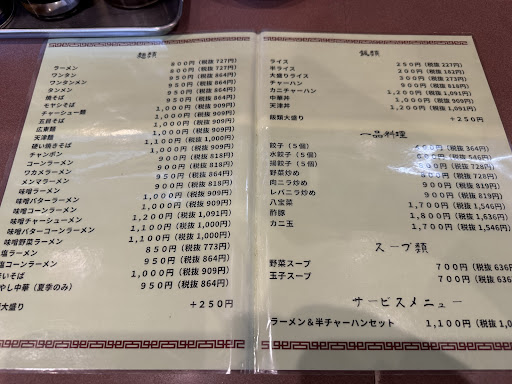 麺類
ラーメン 800円(税抜 727円)
ワンタン 800円(税抜 727円)
ワンタンメン 950円(税抜 864円)
タンメン 950円(税抜 864円)
焼そば 950円(税抜 864円)
モヤシそば 950円(税抜 864円)
チャーシュー麺 1,000円(税抜 909円)
五目そば 1,000円(税抜 909円)
広東麺 1,000円(税抜 909円)
天津麺 1,000円(税抜 909円)
硬い焼きそば 1,100円(税抜 1,000円)
チャンポン 1,100円(税抜 1,000円)
コーンラーメン 900円(税抜 818円)
ワカメラーメン 900円(税抜 818円)
メンマラーメン 950円(税抜 864円)
味噌ラーメン 900円(税抜 818円)
味噌バターラーメン 1,000円(税抜 909円)
味噌コーンラーメン 1,000円(税抜 909円)
味噌チャーシューメン 1,200円(税抜 1,091円)
味噌バターコーンラーメン 1,100円(税抜 1,000円)
味噌野菜ラーメン 1,100円(税抜 1,000円)
塩ラーメン 850円(税抜 773円)
塩コーンラーメン 950円(税抜 864円)
いそば 1,000円(税抜 909円)
やし中華(夏季のみ) 950円(税抜 864円)
大盛り +250円
飯類
ライス 250円(税抜 227円)
半ライス 200円(税抜 182円)
大盛りライス 300円(税抜 273円)
チャーハン 900円(税抜 818円)
カニチャーハン 1,200円(税抜 1,091円)
中華丼 1,000円(税抜 909円)
天津丼 1,200円(税抜 1,091円)
飯類大盛り +250円
一品料理
餃子(5個) 400円(税抜 364円)
水餃子(5個) 600円(税抜 546円)
揚餃子(5個) 500円
野菜炒め 800円(税抜 728円)
肉ニラ炒め 900円(税抜 819円)
レバニラ炒め 900円(税抜 819円)
八宝菜 1,700円(税抜 1,546円)
酢豚 1,800円(税抜 1,636円)
カニ玉 1,700円(税抜 1,546円)
スープ類
野菜スープ 700円(税抜 636円
玉子スープ 700円(税抜 636円
サービスメニュー
ラーメン&半チャーハンセット 1,100円(税抜 1,0